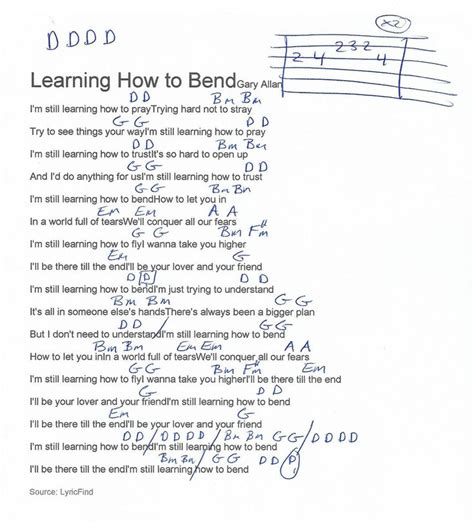 x2
D D D D
2 4 2 3 2 4
Learning How to Bend Gary Allan
D D Bm Bm
I'm still learning how to prayTrying hard not to stray
G G D D
Try to see things your wayI'm still learning how to pray
D D Bm Bm
I'm still learning how to trustIt's so hard to open up
G G D D
And I'd do anything for usI'm still learning how to trust
G G Bm Bm
I'm still learning how to bendHow to let you in
Em Em A A
In a world full of tearsWe'll conquer all our fears
G G Bm F#m
I'm still learning how to flyI wanna take you higher
Em G
I'll be there till the endI'll be your lover and your friend
D D D D
I'm still learning how to bendI'm just trying to understand
Bm Bm G G
It's all in someone else's handsThere's always been a bigger plan
D D G G
But I don't need to understandI'm still learning how to bend
Bm Bm Em Em A A
How to let you inIn a world full of tearsWe'll conquer all our fears
G G Bm F#m G
I'm still learning how to flyI wanna take you higherI'll be there till the end
I'll be your lover and your friendI'm still learning how to bend
Em G
I'll be there till the endI'll be your lover and your friend
D D / D D D D / Bm Bm G G / D D D D
I'm still learning how to bendI'm still learning how to bend
Bm Bm / G G D D D
I'll be there till the endI'm still learning how to bend
Source: LyricFind